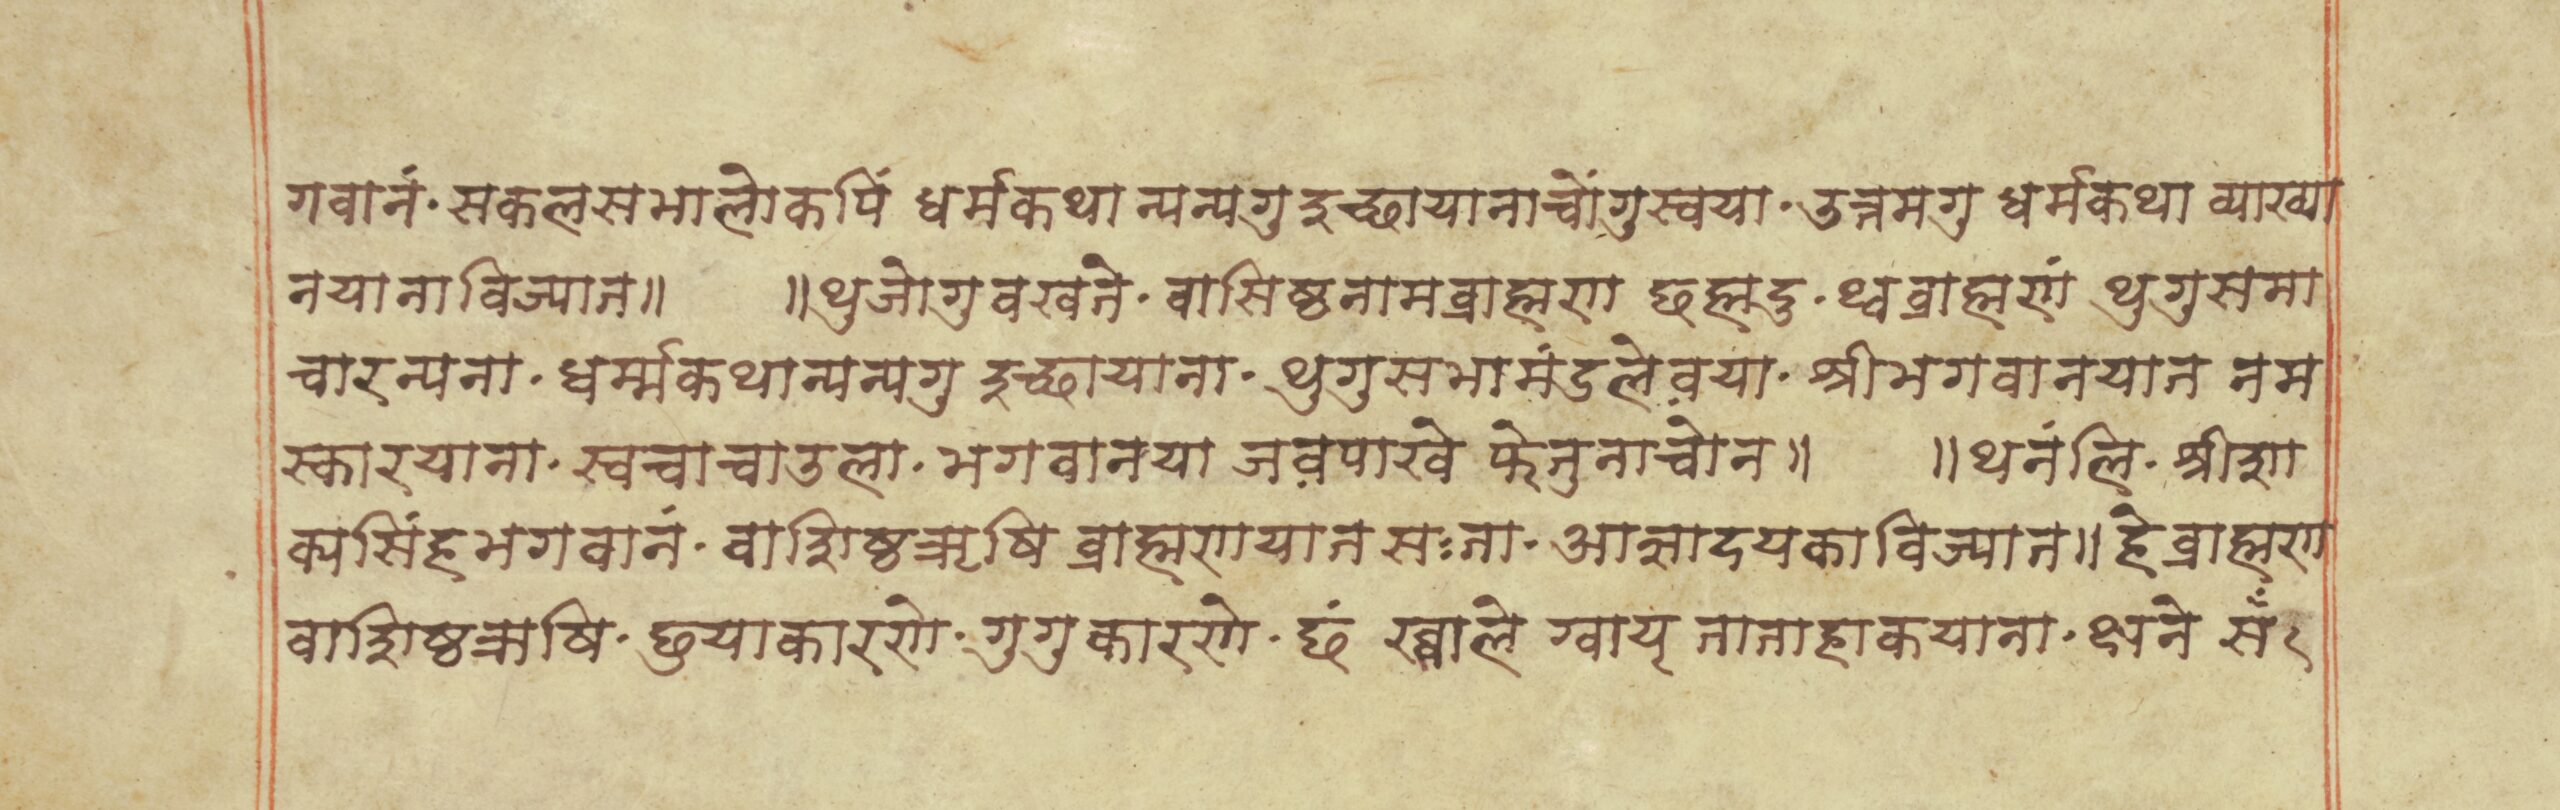 गवानं· सकलसभालोकपिं धर्मकथा न्यन्यगु इच्छायानाचोंगुस्वया· उत्तमगु धर्मकथा व्याख्या
नयाना विज्यात॥ ॥थुजोगु वखते· वासिष्ठनामब्राह्मण छह्मदु· थ्वब्राह्मणं थुगुसमा
चारन्यना· धर्म्मकथान्यन्यगु इच्छायाना· थुगुसभामंडलेव़या· श्रीभगवानयात नम
स्कारयाना· स्वचाचाउला· भगवानया जव़पाखे फेतुनाचोन॥ ॥थनंलि· श्रीशा
क्यसिंहभगवानं· वाशिष्ठऋषि ब्राह्मणयात सःता· आज्ञादयका विज्यात॥ हे ब्राह्मण
वाशिष्ठऋषि· छुयाकारणे· गुगुकारणे· छं ख्वाले ग्वायृ ताताहाकयाना· क्षने सँ